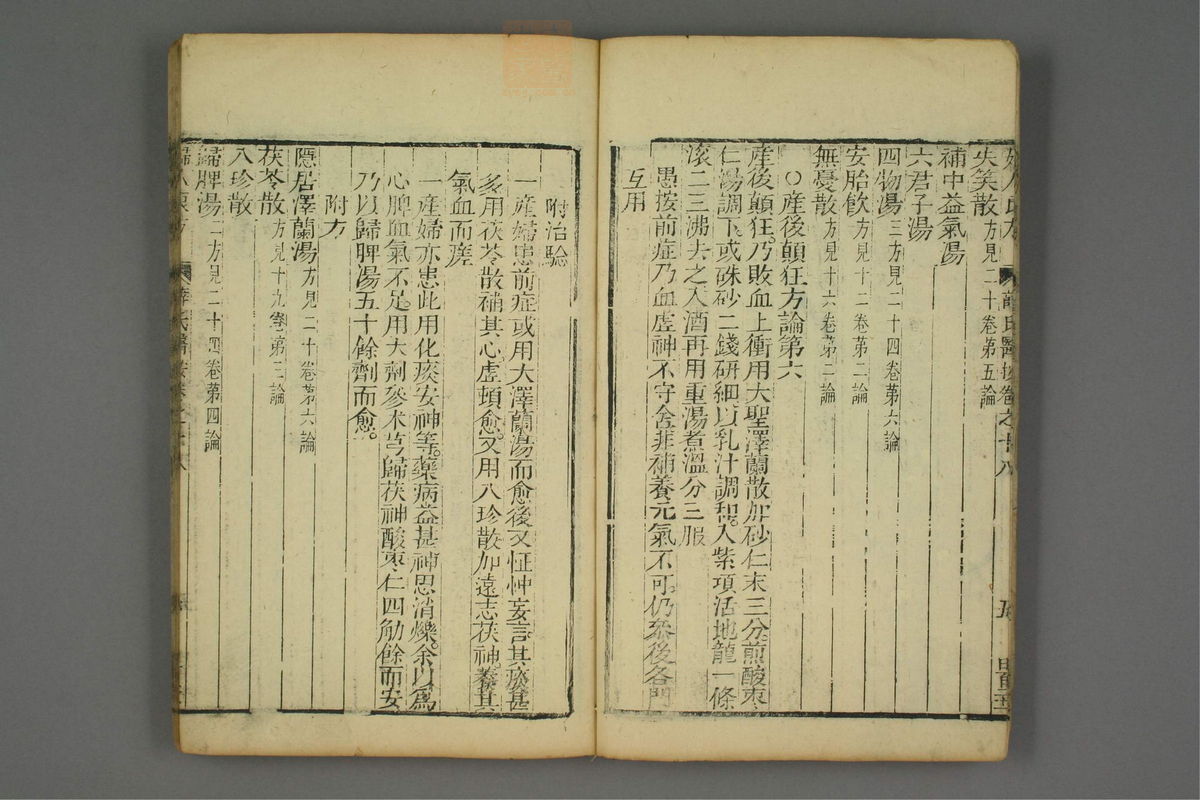 失笑散方見二十卷第五論
補中益氣湯
六君子湯
四物湯二方見二十四卷第六論
安胎飲方見十二卷第二論
無憂散方見十六卷第二論
○產後顛狂方論第六
產後顛狂乃敗血上衝用大聖澤蘭散加砂仁末三分煎酸棗
仁湯調下或硃砂二錢研細以乳汁調和入紫項活地龍一條
滾二三沸去之入酒再用重湯煮溫分三服
愚按前症乃血虛神不守舍非補養元氣不可仍叅後各門
互用
附治驗
一產婦患前症或用大澤蘭湯而愈後又怔忡妄言其痰甚
多用茯苓散補其心虛頓愈又用八珍散加遠志茯神養其
氣血而瘥
一產婦亦患此用化痰安神等藥病益甚神思消爍余以爲
心脾血氣不足用大劑參朮芎歸茯神酸棗仁四觔餘而安
乃以歸脾湯五十餘劑而愈
附方
隱居澤蘭湯方見二十卷第六論
茯苓散方見十九卷第三論
八珍散
歸脾湯二方見二十四卷第四論